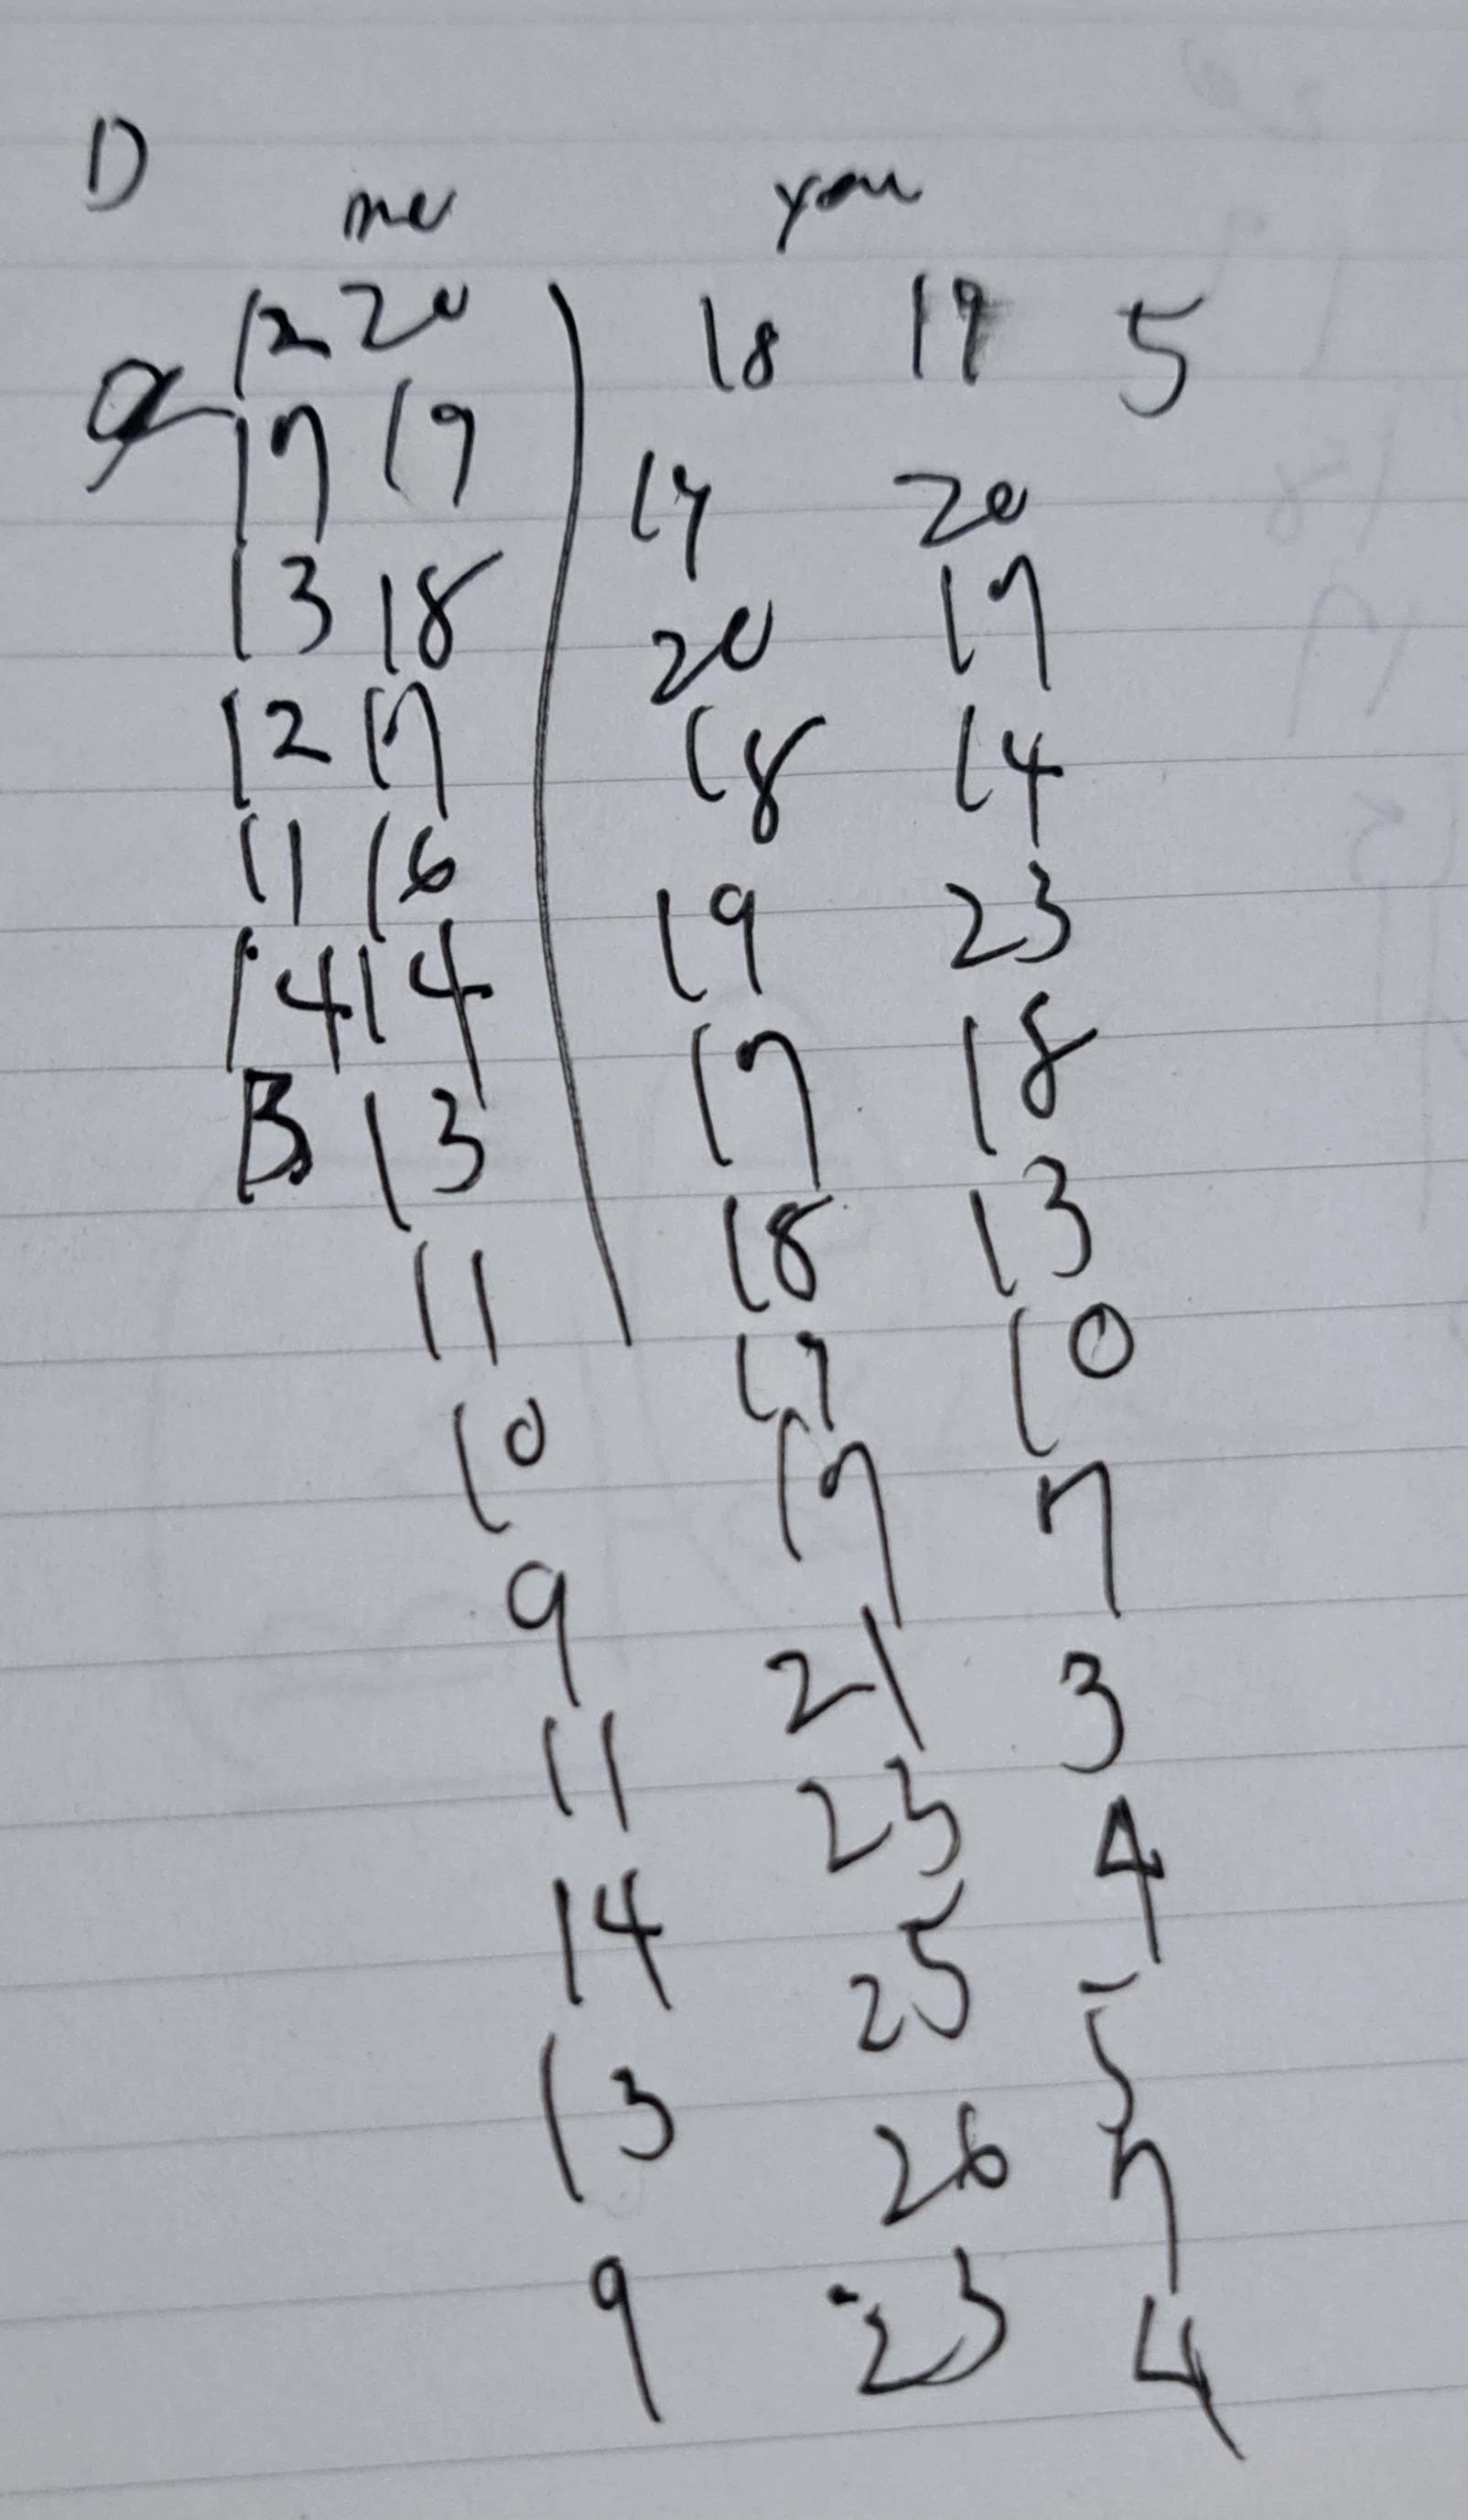 D
me you
12 20 18 19 5
17 19 17 20
13 18 20 17
12 17 18 14
11 16 19 23
14 14 17 18
13 13 18 13
11 17 10
10 17 7
9 21 3
11 23 4
14 25 5
13 26 7
9 23 4